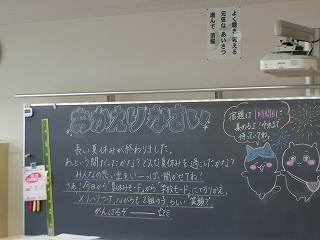 よく聴き 考える
元気な あいさつ
進んで 清掃
おかえりなさい
宿題は1時間目に
集めるよ!今のまま
待っていてね。
長い夏休みが終わりました。
あっという間だったかな?どんな夏休みを過ごしたかな?
みんなの思い出をい〜っぱい聞かせてね!
さあ!今日から"夏休みモード"から"学校モード"に切りかえ、
メリハリつけながらも2組のうらしい笑顔で
がんばろうぞ